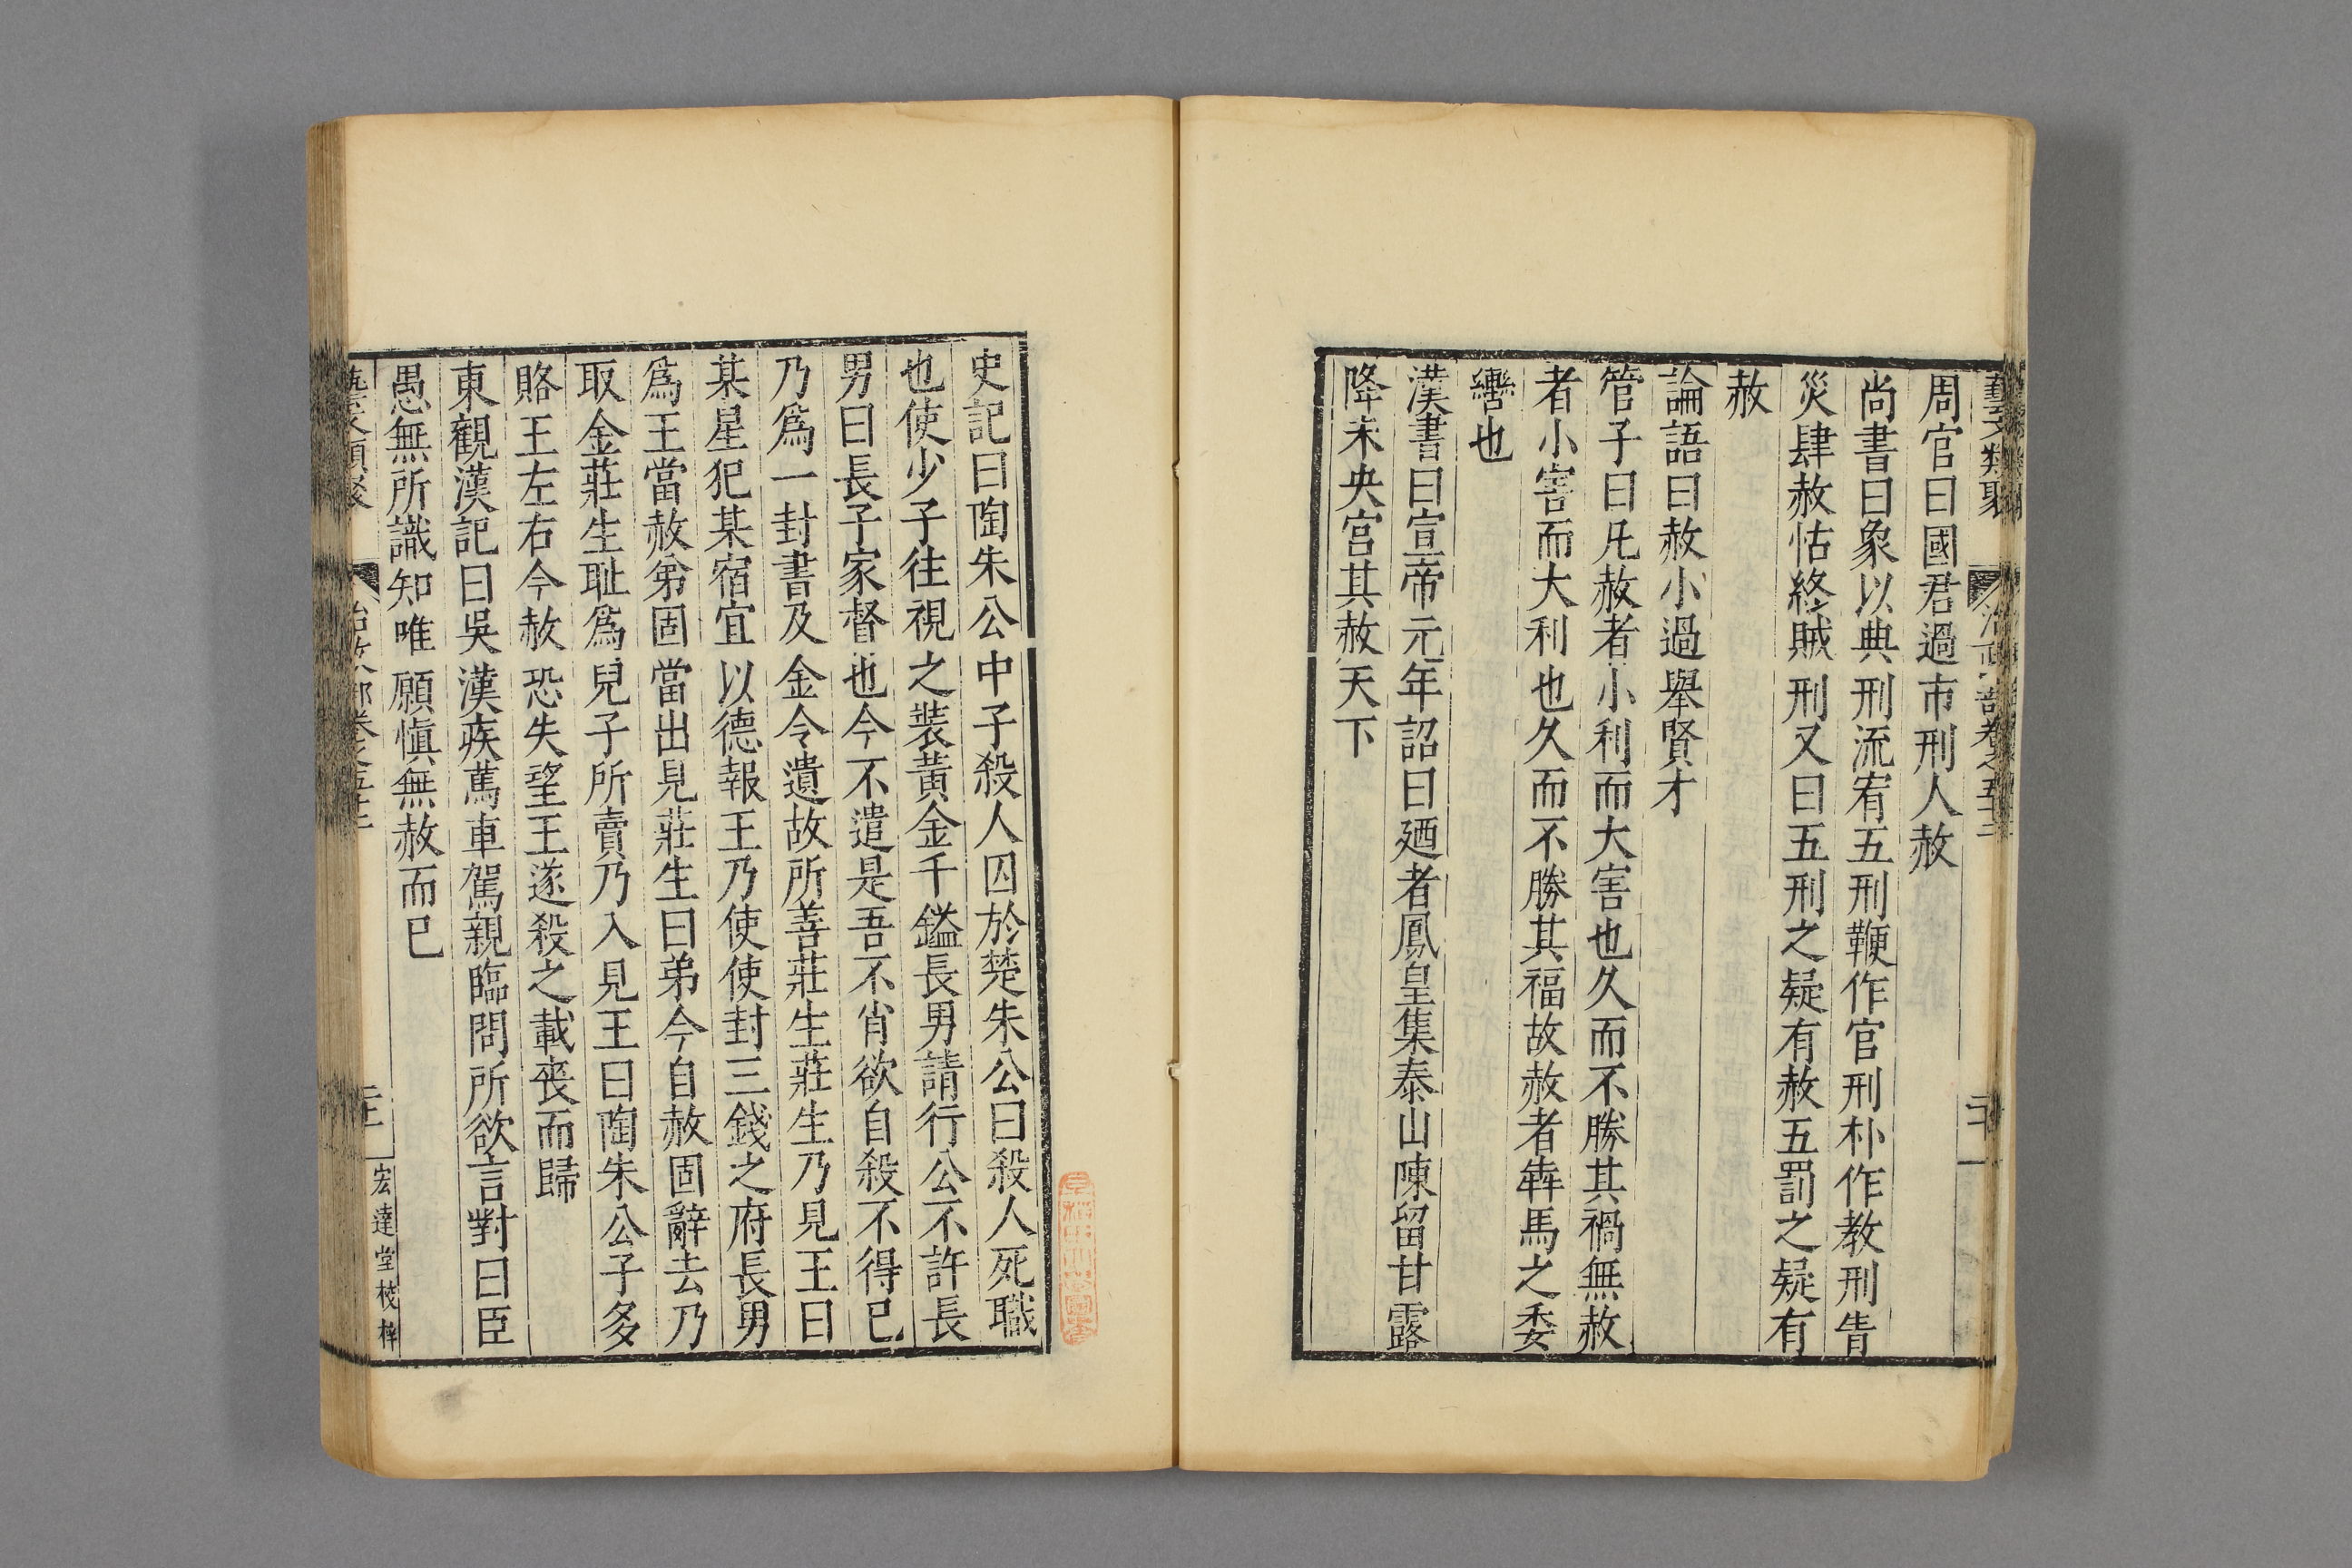 藝文類聚 治政部卷之五十二 二十一
周官曰國君過市刑人赦
尚書曰象以典刑流宥五刑鞭作官刑朴作教刑眚
災肆赦怙終賊刑又曰五刑之疑有赦五罰之疑有
赦
論語曰赦小過舉賢才
管子曰凡赦者小利而大害也久而不勝其禍無赦
者小害而大利也久而不勝其福故赦者犇馬之委
轡也
漢書曰宣帝元年詔曰廼者鳳皇集泰山陳留甘露
降未央宮其赦天下
史記曰陶朱公中子殺人囚於楚朱公曰殺人死職
也使少子往視之裝黃金千鎰長男請行公不許長
男曰長子家督也今不遣是吾不肖欲自殺不得已
乃爲一封書及金令遺故所善莊生莊生乃見王曰
某星犯某宿宜以德報王乃使使封三錢之府長男
爲王當赦弟固當出見莊生曰弟今自赦固辭去乃
取金莊生耻爲兒子所賣乃入見王曰陶朱公子多
賂王左右今赦恐失望王遂殺之載喪而歸
東觀漢記曰吳漢疾篤車駕親臨問所欲言對曰臣
愚無所識知唯願愼無赦而已
宏達堂校梓